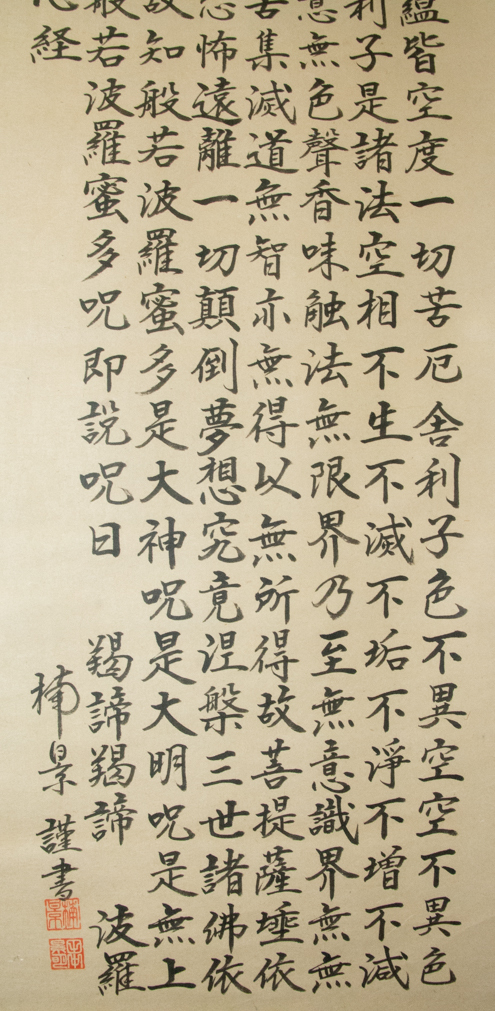 蘊皆空度一切苦厄舎利子色不異空空不異色
利子是諸法空相不生不滅不垢不淨不增不減
意無色聲香味触法無限界乃至無意識界無無
苦集滅道無智亦無得以無所得故菩提薩埵依
怖遠離一切顛倒夢想究竟涅槃三世諸佛依
故知般若波羅蜜多是大神呪是大明呪是無上
般若波羅蜜多呪即説呪曰 羯諦羯諦 波羅
心経
楠景謹書